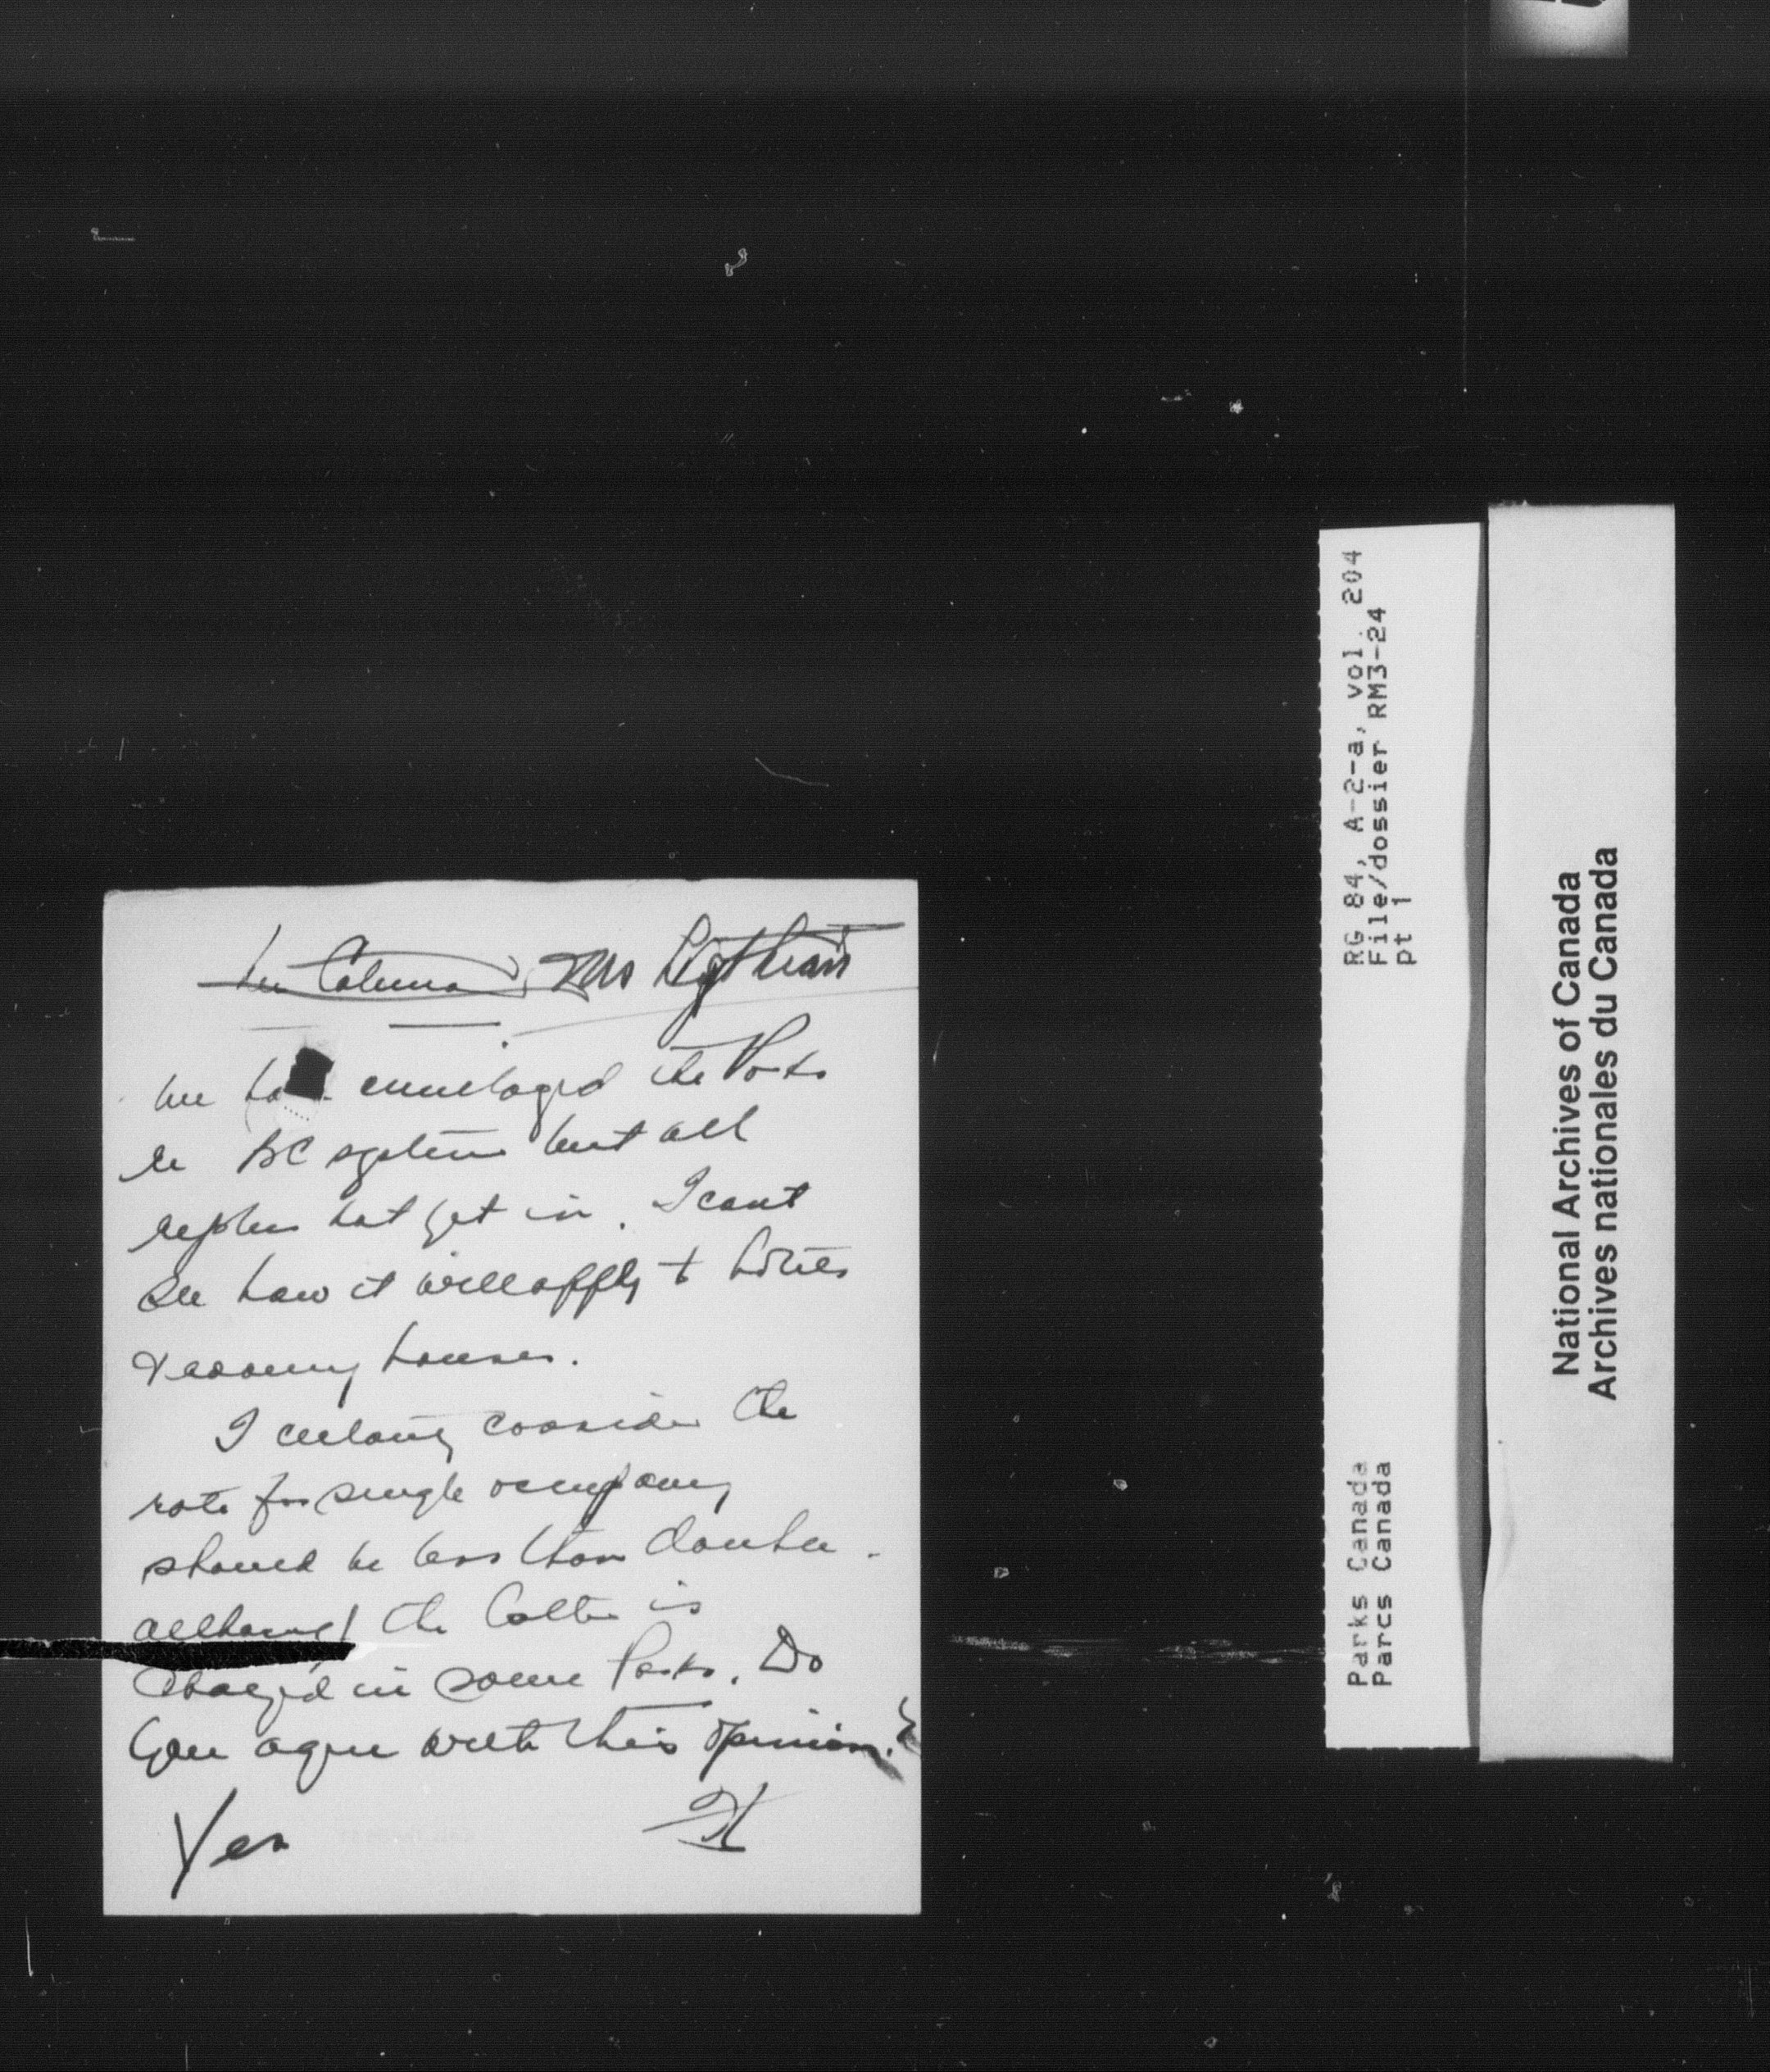 Mr Coleman Mrs
we circularized the Parks
re BC system but all
replies not yet in. I cant
see how it will apply to hotels
& rooming houses.
I certainly consider the
rate for single occupancy
should be less than double.
although the latter is
charged in some Parks. Do
you agree with this opinion.?
Yes
RG 84, A-2-a, vol. 204
File/dossier RM3-24
pt 1
Parks Canada
Parcs Canada
National Archives of Canada
Archives nationales du Canada